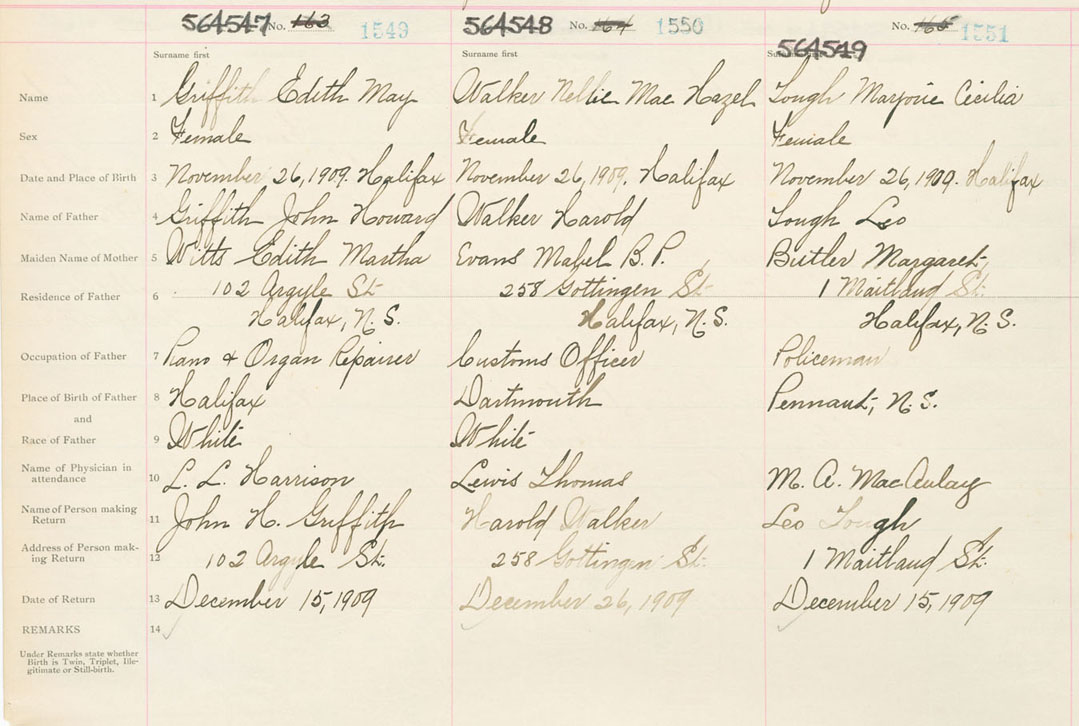 564547 No. 163 1549 564548 No. 164 1550 No. 165 1551
Surname first Surname first 564549
Name 1 Griffith Edith May Walker Nellie Mae Hazel Lough Marjorie Cecilia
Sex 2 Female Female Female
Date and Place of Birth 3 November 26, 1909. Halifax November 26, 1909. Halifax November 26, 1909. Halifax
Name of Father 4 Griffith John Howard Walker Harold Lough Leo
Maiden Name of Mother 5 Witts Edith Martha Evans Mabel B. P. Butler Margaret
Residence of Father 6 102 Argyle St. 258 Gottingen St. 1 Maitland St.
Halifax, N. S. Halifax, N. S. Halifax, N. S.
Occupation of Father 7 Piano & Organ Repairer Customs Officer Policeman
Place of Birth of Father 8 Halifax Dartmouth Pennant, N. S.
and
Race of Father 9 White White
Name of Physician in
attendance 10 L. L. Harrison Lewis Thomas M. A. MacAulay
Name of Person making
Return 11 John H. Griffith Harold Walker Leo Lough
Address of Person mak-
ing Return 12 102 Argyle St. 258 Gottingen St. 1 Maitland St.
Date of Return 13 December 15, 1909 December 26, 1909 December 15, 1909
REMARKS 14
Under Remarks state whether
Birth is Twin, Triplet, Ille-
gitimate or Still-birth.